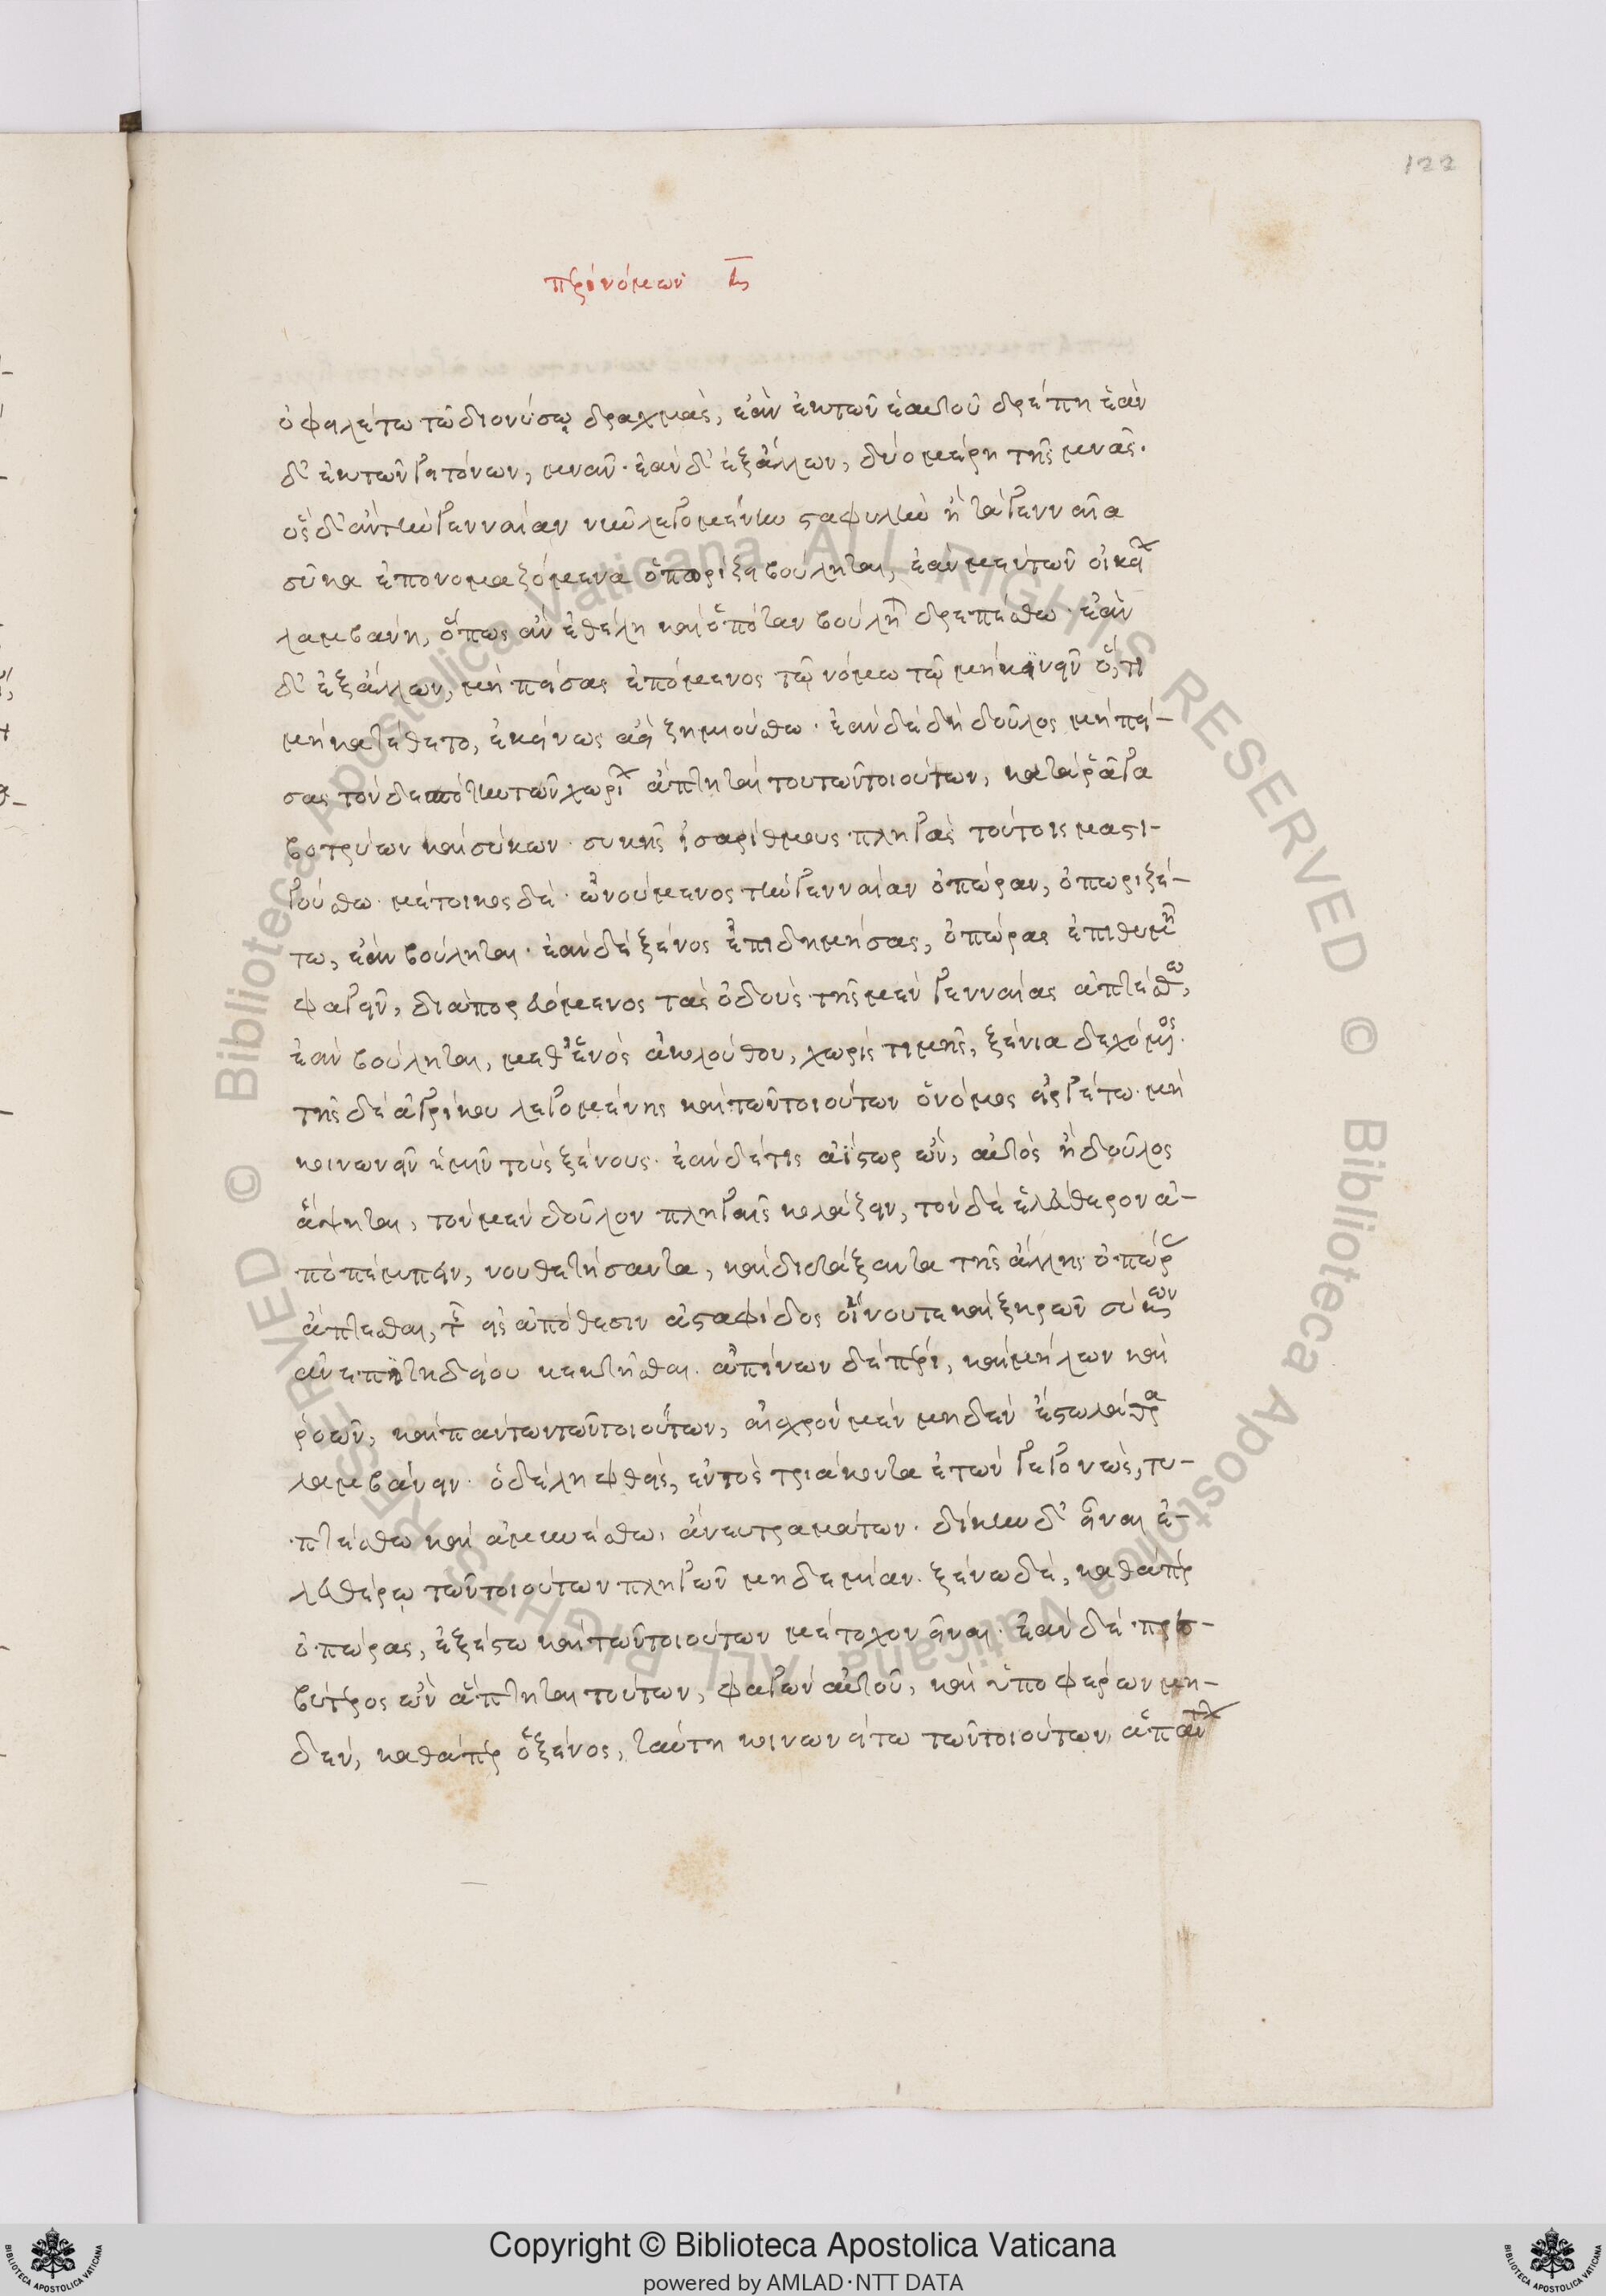 122
περὶ νόμων
ὀφειλέτω τῶ διονύσῳ δραχμὰς, ἐὰν ἐκ τῶν ἑαυτοῦ δρέπη ἐὰν
δ' ἐκ τῶν γειτόνων, μνᾶν· ἐὰν δ' ἐξ ἄλλων, δύο μέρη τῆς μνᾶς·
ὃς δ' ἂν τὴν γενναίαν νῦν λεγομένην σταφυλὴν ἢ τὰ γενναῖα
σῦκα ἐπονομαζόμενα ὀπωρίζειν βούληται, ἐὰν μὲν τῶν οἰκεί
λαμβάνη, ὅπως ἂν ἐθέλη καὶ ὁπόταν βούλη δρεπέσθω· ἐὰν
δ' ἐξ ἄλλων, μὴ πείσας ἑπόμενος τῷ νόμω τῷ μὴ κινεῖν ὅ,τι
μὴ κατέθετο, ἐκείνως ἀεὶ ζημιούσθω· ἐὰν δὲ δὴ δοῦλος μὴ πεί-
σας τὸν δεσπότην τῶν χωρί ἅπτηταί του τῶν τοιούτων, κατὰ ῥᾶγα
βοτρύων καὶ σύκων συκῆς ἰσαρίθμους πληγὰς τούτοις μαστι-
γούσθω· μέτοικος δὲ ὠνούμενος τὴν γενναίαν ὀπώραν, ὀπωριζέ-
τω, ἐὰν βούληται· ἐὰν δὲ ξένος ἐπιδημήσας, ὀπώρας ἐπιθυμῆ
φαγεῖν, διαπορευόμενος τὰς ὁδοὺς τῆς μὲν γενναίας ἁπτέσθω,
ἐὰν βούληται, μεθ' ἑνὸς ἀκολούθου, χωρὶς τιμῆς, ξένια δεχόμενος·
τῆς δὲ ἀγρίκου λεγομένης καὶ τῶν τοιούτων ὁ νόμος εἰργέτω μὴ
κοινωνεῖν ἡμῖν τοὺς ξένους· ἐὰν δέ τις ἀΐστωρ ὢν, αὐτὸς ἢ δοῦλος
ἅψηται, τὸν μὲν δοῦλον πληγαῖς κολάζειν, τὸν δὲ ἐλεύθερον ἀ-
ποπέμπειν, νουθετήσαντα, καὶ διδάξαντα τῆς ἄλλης ὀπώρας
ἅπτεσθαι, τ εἰς ἀπόθεσιν ἀσταφίδος οἴνου τε καὶ ξηρῶν σύκων
ἀνεπιτηδείου κεκτῆσθαι. ἀπίων δὲ πέρι, καὶ μήλων καὶ
ῥόων, καὶ πάντων τῶν τοιούτων, αἰσχρὸν μὲν μηδὲν ἔστω λάθρα
λαμβάνειν· ὁ δὲ ληφθεὶς, ἐντὸς τριάκοντα ἐτῶν γεγονὼς, τυ-
πτέσθω καὶ ἀμυνέσθω, ἄνευ τραυμάτων. δίκην δ' εἶναι ἐ-
λευθέρῳ τῶν τοιούτων πληγῶν μηδεμίαν. ξένω δὲ, καθάπερ
ὀπώρας, ἐξέστω καὶ τῶν τοιούτων μέτοχον εἶναι· ἐὰν δὲ πρεσ-
βύτερος ὢν ἅπτηται τούτων, φαγὼν αὐτοῦ, καὶ ὑποφέρων μη-
δὲν, καθάπερ ὁ ξένος, ταύτη κοινωνείτω τῶν τοιούτων ἁπάντων
© Biblioteca Apostolica Vaticana ALL RIGHTS RESERVED
© Biblioteca Apostolica Vaticana ALL RIGHTS RESERVED
Copyright © Biblioteca Apostolica Vaticana
powered by AMLAD·NTT DATA
BIBLIOTECA APOSTOLICA VATICANA
BIBLIOTECA APOSTOLICA VATICANA